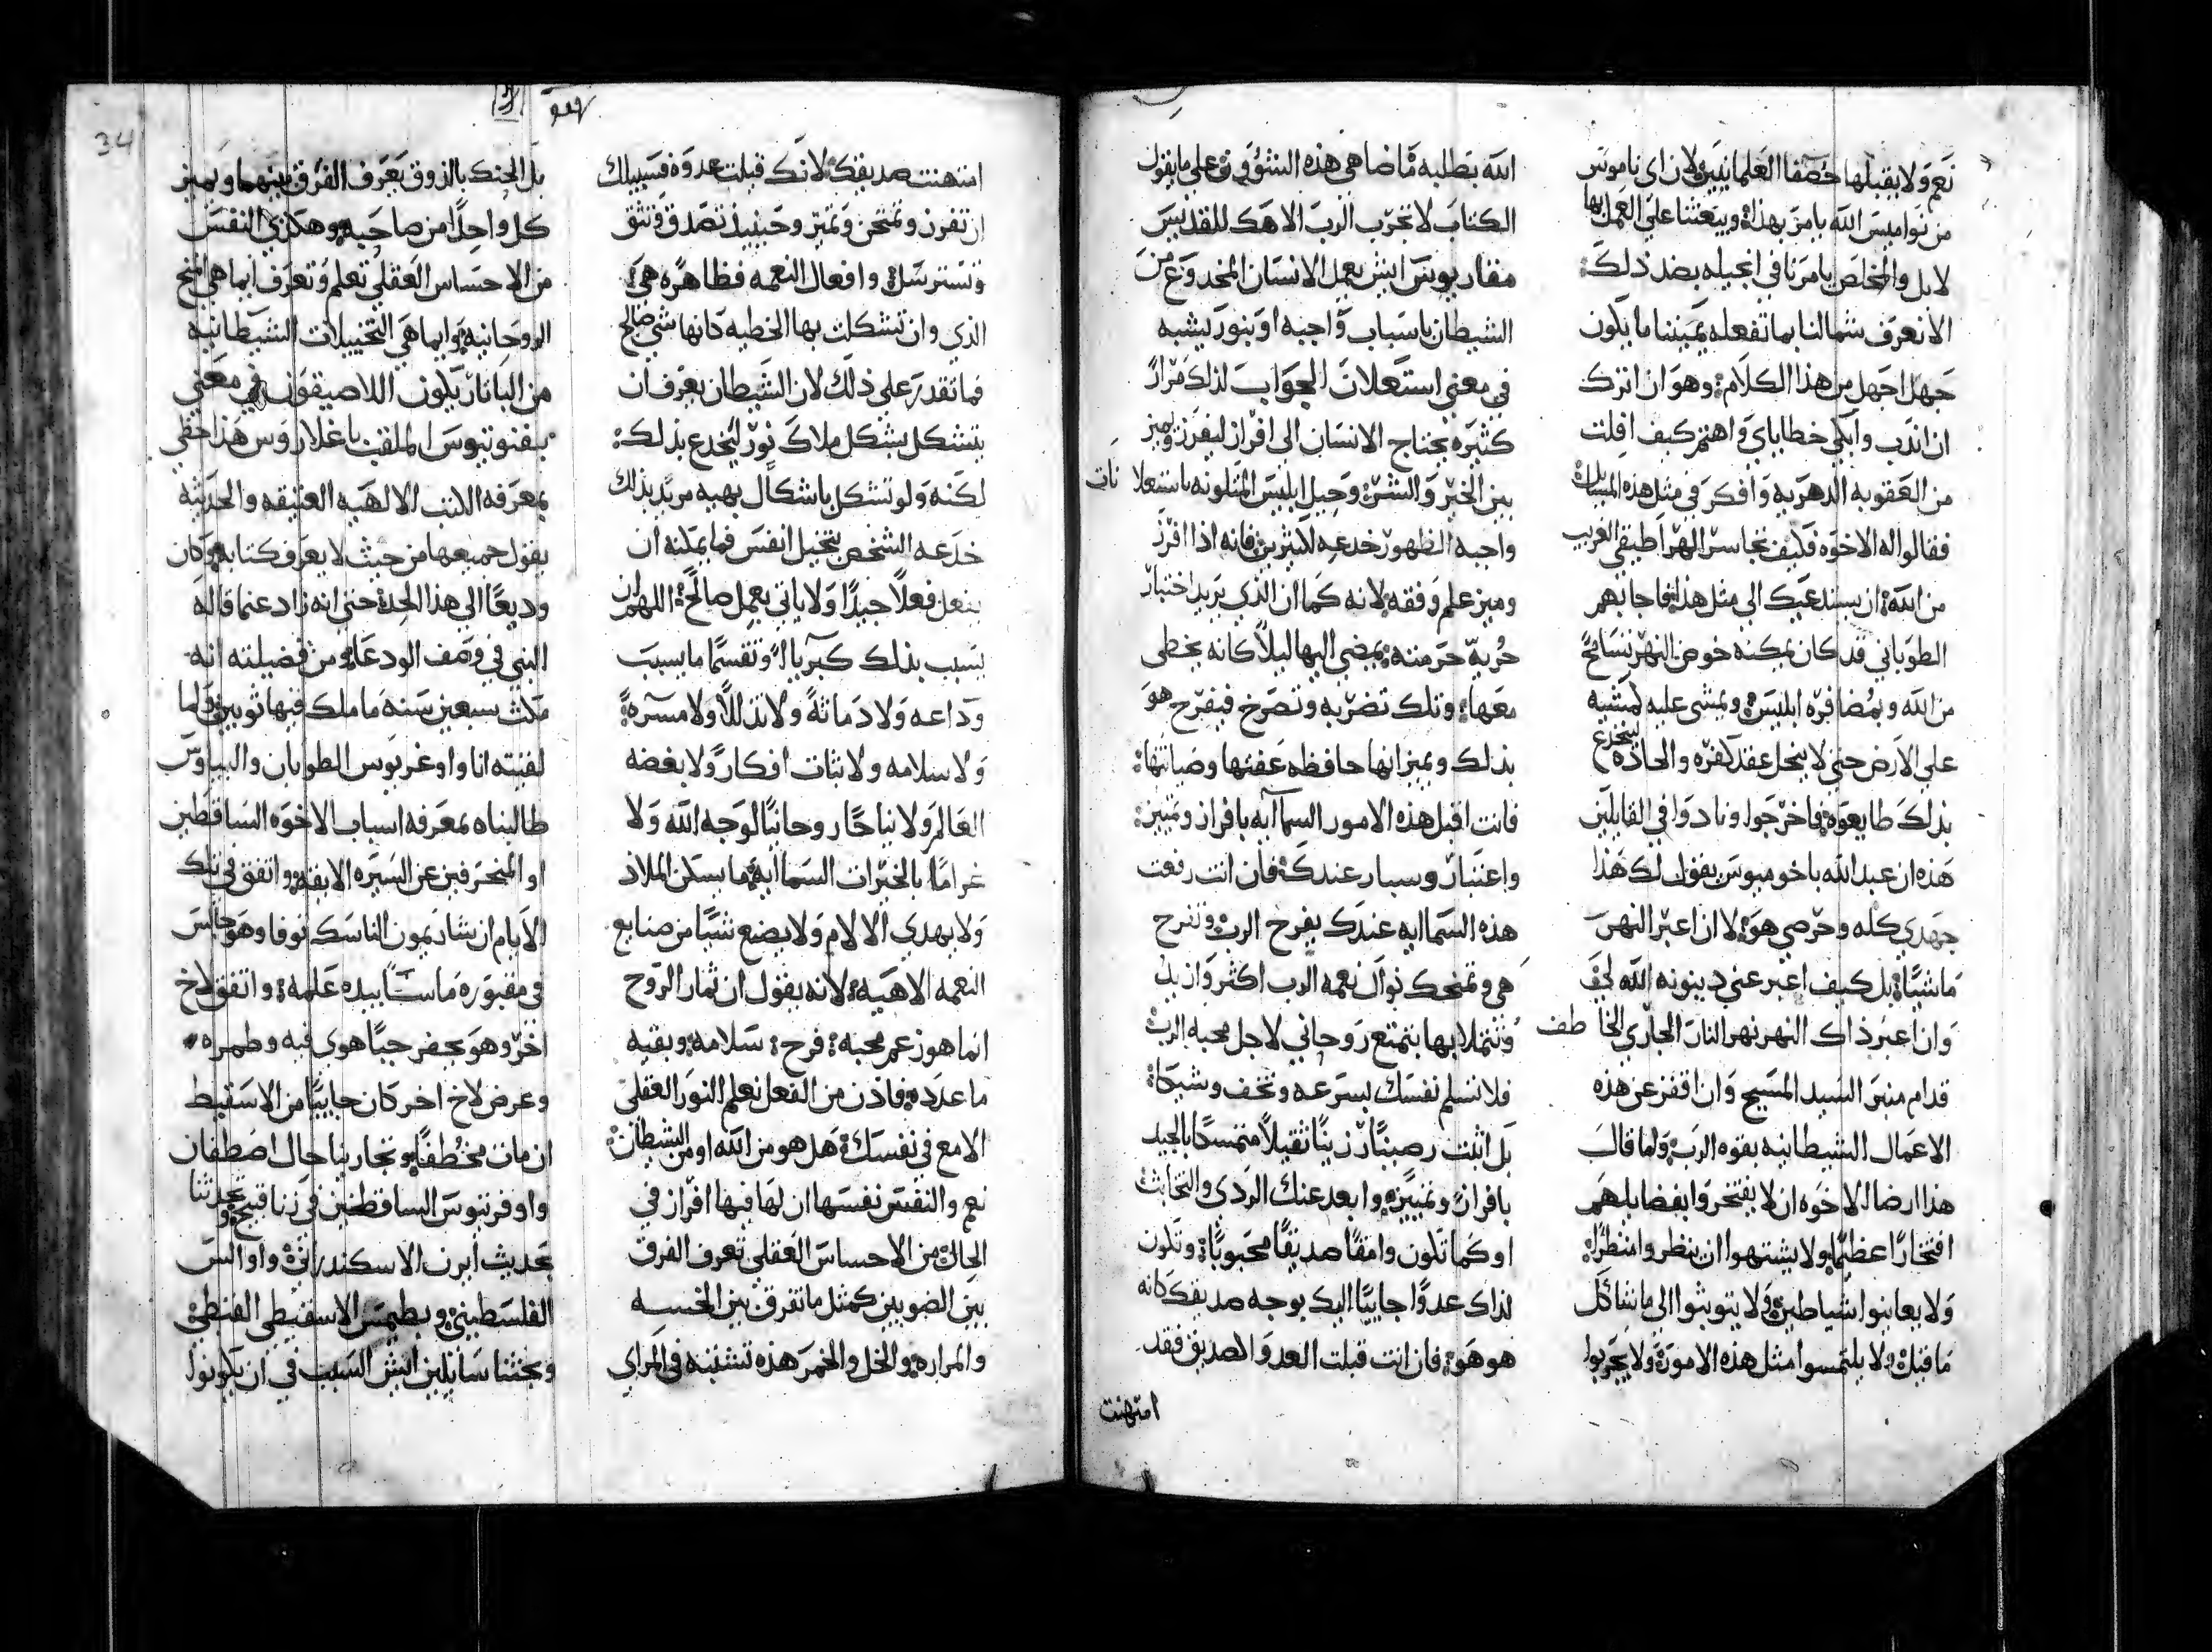 نعم ولا يقبلها حصفا العلمانيين ولان اي ناموس
من نواميس الله يامر بهذا ويبعثنا علي العمل بها
لا بل والمخلص يامرنا في انجيله بضد ذلك
الا نعرف شمالنا بما تفعله يميننا ما يكون
جهل اجهل من هذا الكلام وهو ان اترك
ان اندب وابكي خطاياي واهتم كيف افلت
من العقوبه الدهريه وافكر في مثل هذه المسايل
فقالوا له الاخوه فكيف تجاسر الهراطيقي الغريب
من الله ان يستدعيك الي مثل هذا فاجابهم
الطوباني قد كان يمكنه خوض النهر تسامحًا
من الله وبمضافرة ابليس ويمشي عليه كمشيه
علي الارض حتي لا ينحل عقد كفره والحاده لينخدع
بذلك طايعوه فاخرجوا ونادوا في القايلين
هذه ان عبد الله باخوميوس يقول لك هذا
جهدي كله وحرصي هو لا ان اعبر النهر
ماشيًا بل كيف اعبر عني دينونه الله
وان اعبر ذاك النهر نهر النار الجاري الخاطف
قدام منبر السيد المسيح وان اقفز عن هذه
الاعمال الشيطانيه بقوه الرب ولما قال
هذا ارضا الاخوه ان لا يفتخروا بفضايلهم
افتخارًا عظيمًا ولا يشتهوا ان ينظروا منظرًا
ولا يعاينوا شياطين لا يتوثبوا الي ما شاكل
ما قيل ولا يلتمسوا مثل هذه الامور ولا يجربوا
الله بطلبه ما ضاهي هذه الشؤون علي ما يقول
الكتاب لا تجرب الرب الاهك للقديس
مقاريوس ايش يعمل الانسان المخدوع من
الشيطان باسباب واجبه او بنور يشبه
في معني استعلان الجواب لذلك مرارًا
كثيره يحتاج الانسان الي افراز ليفرز ويميز
بين الخير والشر وحيل ابليس المتلونه باستعلانات
واجبه الظهور خدعه لكثيرين فانه اذا افرز
وميز علم وفقه لانه كما ان الذي يريد اختبار
حُريه حرمته يمضي اليها ليلًا كانه يخطي
معها وتلك تضربه وتصرخ فيفرح هو
بذلك ويميز انها حافظه عفتها وصيانتها
فانت اقبل هذه الامور السماايه بافراز وتمييز
واعتبار وسبار عندك فان انت رفعت
هذه السماايه عندك يفرح الرب وتفرح
هي وتمنحك نوال نعمه الرب اكثر وازيد
وتتملا بها بتمتع روحاني لاجل محبه الرب
فلا تسلم نفسك بسرعه وتخف وشيكا
بل اثبت رصينًا رزينًا ثقيلًا متمسكًا بالجيد
بافراز وتمييز وابعد عنك الردي والتخابث
او كما تكون وامقًا صديقًا محبوبًا وتكون
لذاك عدوًا جاييًا اليك بوجه صديقك كانه
هو هو فان انت قبلت العدو الصديق فقد
امتهنت
34
امتهنت صديقك لانك قبلت عدوه فسبيلك
ان تفرز وتمتحن وتميز وحينيذ تصدق وتثق
وتسترسل وافعال النعمه فظاهره هي
الذي وان تشكلت بها الخطيه كانها شي صالح
فما تقدر علي ذلك لان الشيطان يعرف ان
يتشكل بشكل ملاك نور ليخدع بذلك
لكنه ولو تشكل باشكال بهيه مريد بذلك
خدعه الشخص بتخيل انفس فما يمكنه ان
يفعل فعلًا جيدًا ولا ياتي بعمل صالح اللهم ان
يسبب بذلك كبريا وتقسما ما يسبب
وداعه ولا دماثةً ولا تذللًا ولا مسرةً
ولا سلامه ولا ثبات افكار ولا بغضه
العالم ولا نياحًا روحانيًا لوجه الله ولا
غرامًا بالخيرات السماايه ما يسكن الملاذ
ولا يهدي الالام ولا يصنع شيًا من صنايع
النعمه الالاهيه لانه يقول ان ثمار الروح
انما هو زعم محبه فرح سلامه وبقيه
ما عدده فاذن من الفعل تعلم النور العقلي
الامع في نفسك هل هو من الله او من الشيطان
نعم والنفس نفسها ان لها فيها افراز في
الحال من الاحساس العقلي تعرف الفرق
بين الضويين كمثل ما تفرق بين الخسه
والمراره والخل والخمر هذه تشتبه في المراي
بل الحنك بالذوق يعرف الفرق بينهما ويميز
كل واحدًا من صاحبه وهكذي النفس
من الاحساس العقلي تعلم وتعرف ايما هي المنح
الروحانيه وايما هي التخييلات الشيطانيه
من الباناريكون اللاصيقون في معني
بفنوتيوس الملقب باغلاروس هذا حظي
بمعرفه الكتب الالهيه العتيقه والحديثه
يقول جميعها من حيث لا يعرف كتابه وكان
وديعًا الي هذا الحد حتي انه زاد عنما قاله
النبي في وصف الودعا ومن فضيلته انه
مكث سبعين سنه ما ملك فيها ثوبين ولما
لقيته انا واوغريوس الطوبان والبياوس
طالبناه بمعرفه اسباب الاخوه الساقطين
او المنحرفين عن السيره الانيقه واتفق في تلك
الايام ان شاديمون الناسك توفا وهو جالس
في مقبوره ماسكًا بيده علمه واتفق لاخ
اخر وهو يحفر جبًا هوي فيه وطمره
وعرض لاخ اخر كان جاييًا من الاسقيط
ان مات مختطفًا وتجارينا حال اصطفان
واوفرتيوس الساقطين في زنا قبيح وتحدثنا
بحديث ايرن الاسكندراني واوالس
الفلسطيني وبطيمس الاسقيطي القبطي
وبحثنا سايلين ايش السبب في ان يكونوا